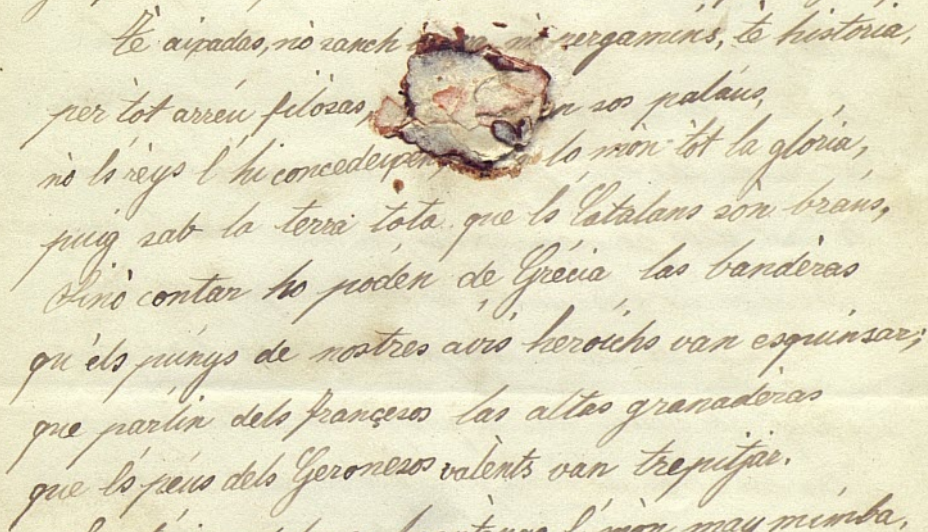 Té aixadas, nò sanch ni pergamíns, té história,
per tot arréu filósas, en sos paláus,
nò ls réys l' hi concedeixen, lo món tòt la glória,
puig sab la terra tota que ls Catalans són bráus,
Sinó contar ho póden de Grécia las bandéras
qu' éls púnys de nostres ávis heróichs van esquinsar;
que parlin dels françesos las altas granadéras
que ls péus dels Geronesos valénts van trepitjar.
l món may mimba